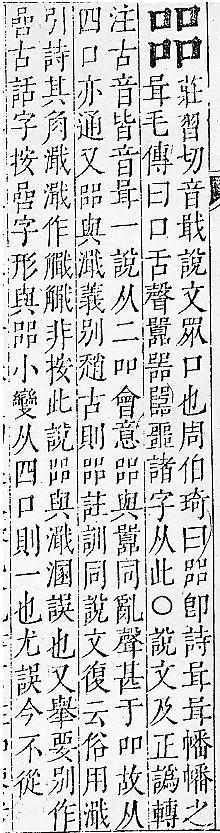 㗊
莊習切音戢說文眾口也周伯琦曰㗊卽詩咠咠幡幡之
咠毛傳曰口舌聲嚻器嚚噩諸字从此○說文及正譌轉
注古音皆音咠一說从二吅會意㗊與嚻同亂聲甚于吅故从
四口亦通又㗊與濈義别趙古則㗊註訓同說文復云俗用濈
引詩其角濈濈作非按此說㗊與濈溷誤也又舉要别作
古話字按字形與㗊小變从四口則一也尤誤今不從